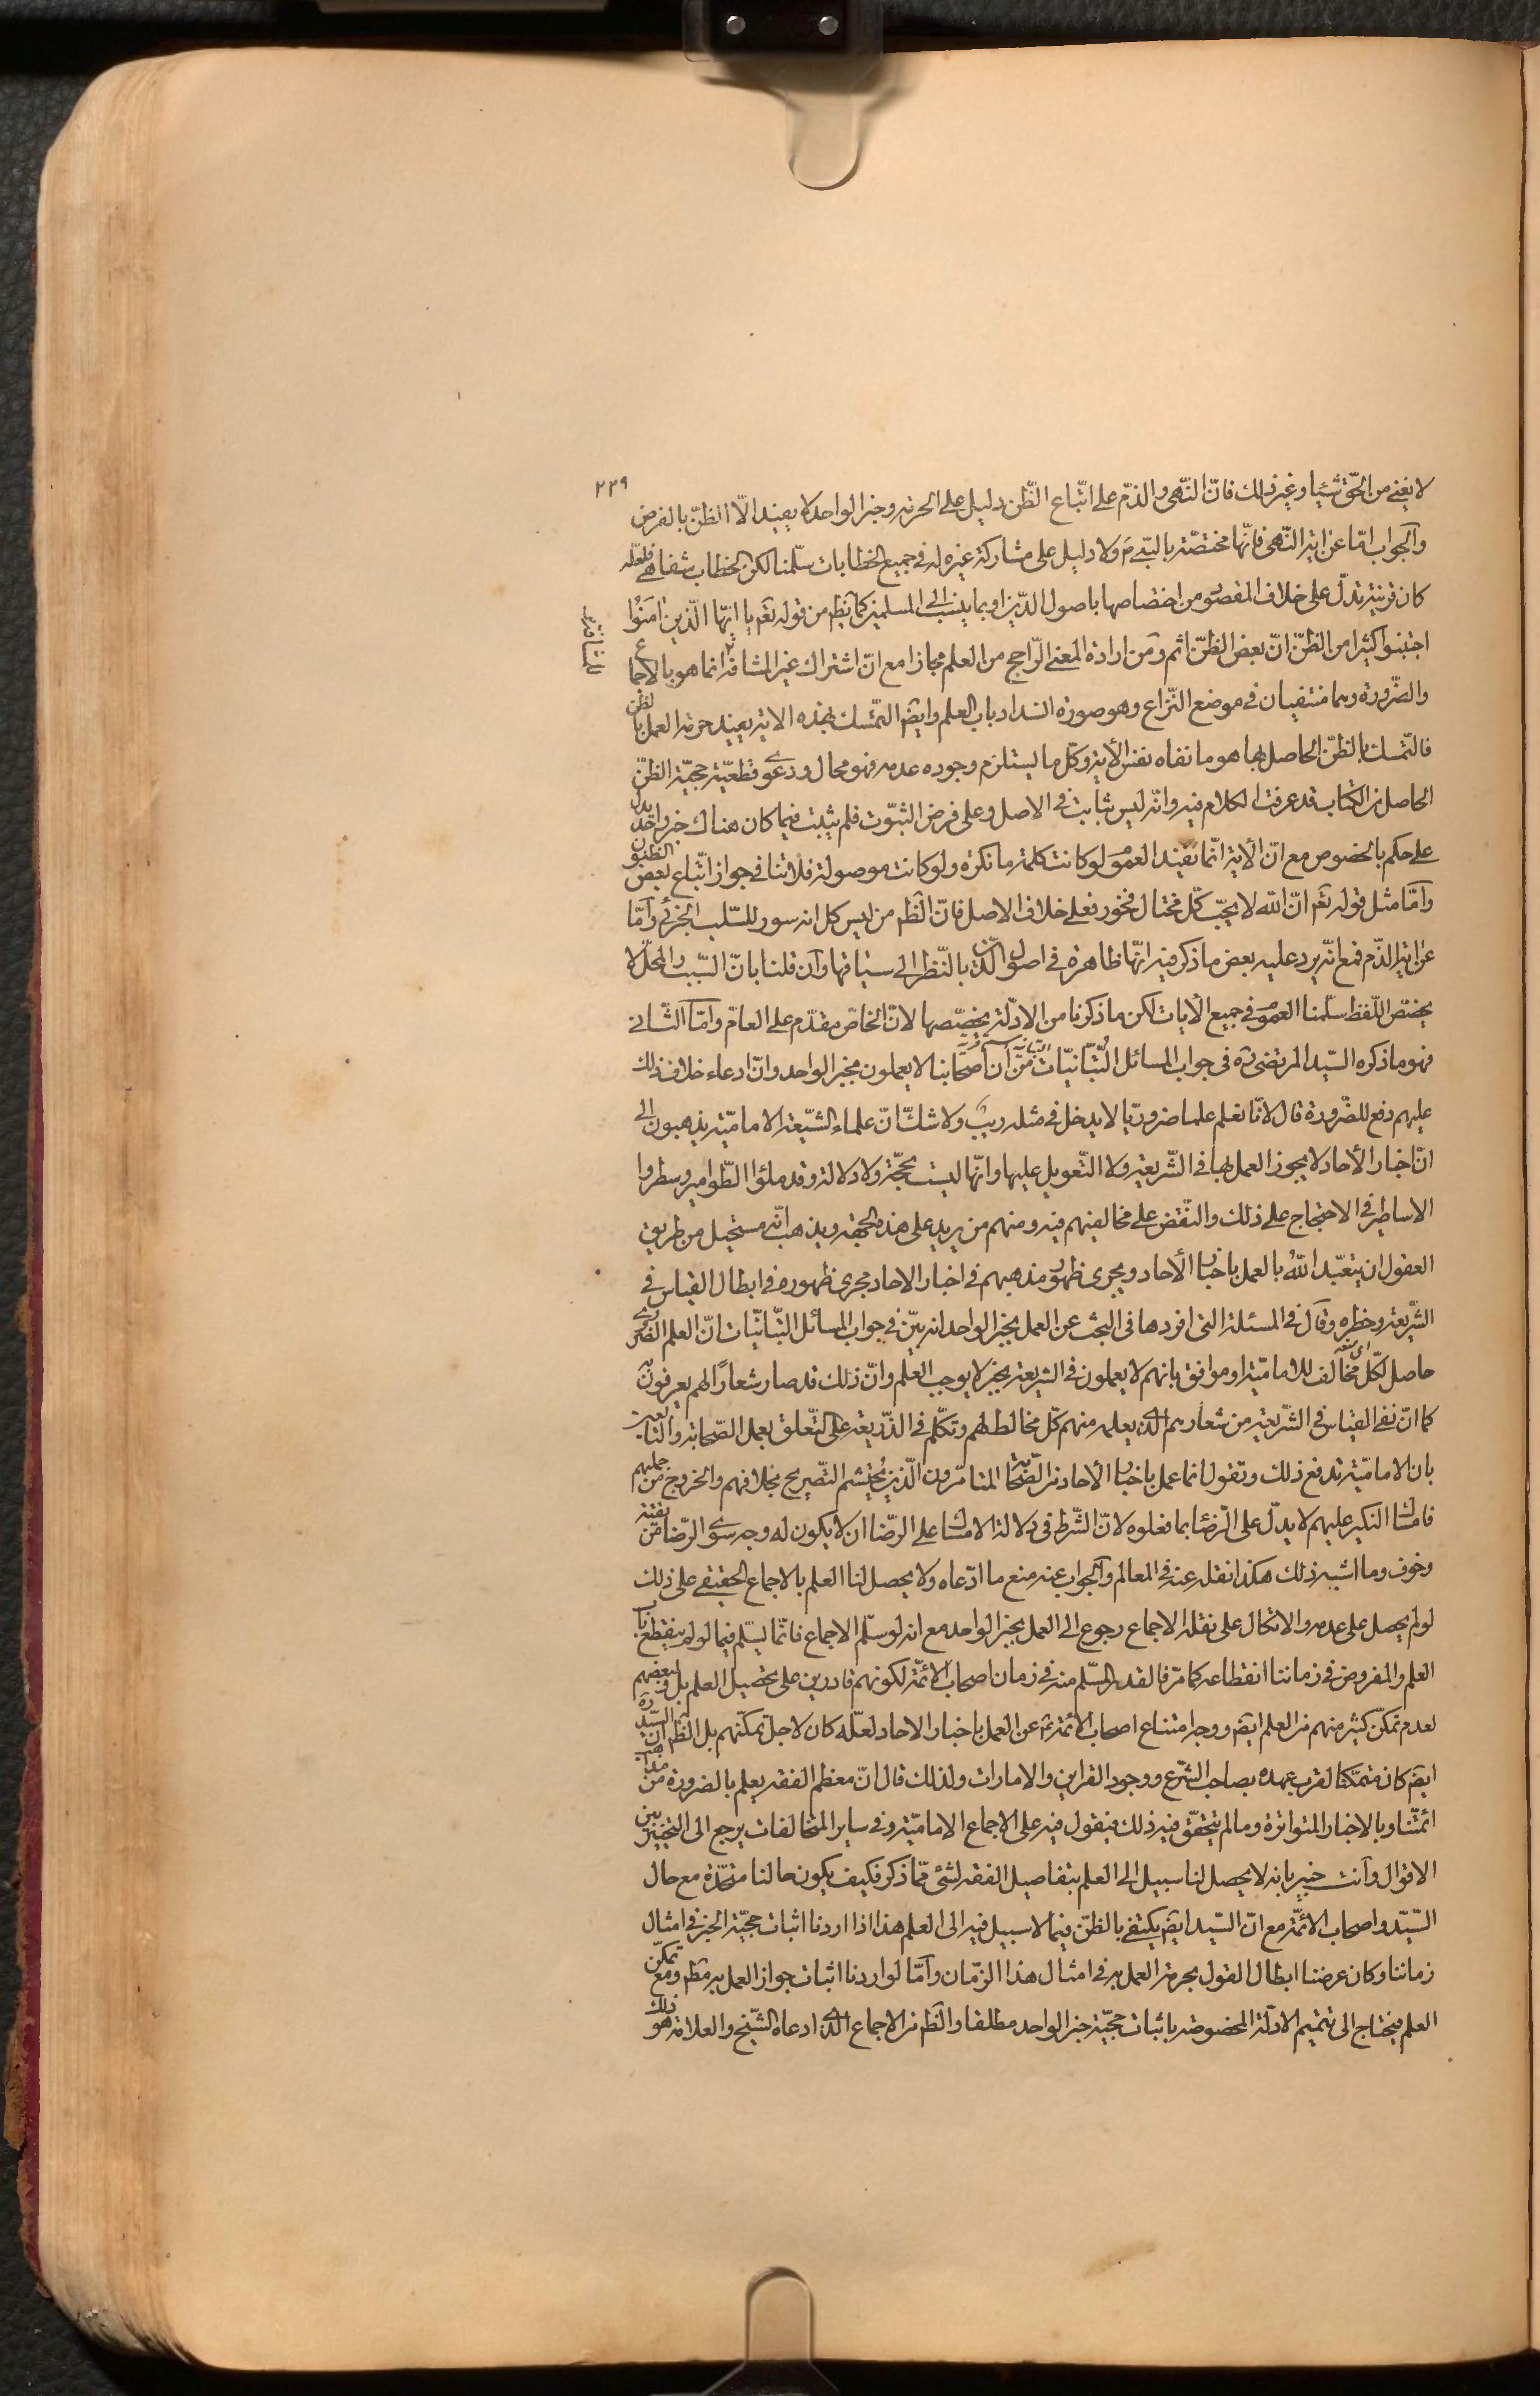 ٢٢٩
لا يغنى من الحقّ شيئا وغير ذلك فانّ النّهى والذمّ على اتّباع الظّن دليل على الحرمة وخبر الواحد لا يفيد الّا الظنّ بالفرض
والجواب امّا عن اية النّهى فانّها مختصّة بالنّبى ص ولا دليل على مشاركة غيره له فى جميع الخطابات سلّمنا لكن الخطاب شفاهى فلعلّه
كان قرينة تدلّ على خلاف المقصود من اختصاصها باصول الدّين او بما ينسب الى المسلمين كما يظهر من قوله تعم يا ايّها الّذين امَنُوا
اجتنبوا كثيرا من الظنّ انّ بعض الظنّ اثم ومن ارادة المعنى الرّاجح من العلم مجازا مع انّ اشتراك غير المشافه انما هو بالاجماع
والضّرورة وهما منتفيان فى موضع النّزاع وهو صورة انسداد باب العلم وايضا التمسّك بهذه الاية يفيد حرمة العمل بالظنّ
فالتّمسك بالظنّ الحاصل بها هو ما نفاه نفس الأية وكلّ ما يستلزم وجوده عدمه فهو محال ودعوى قطعيّة حجيّة الظنّ
الحاصل من الكتاب قد عرفت الكلام فيه وانّه ليس بثابت فى الاصل وعلى فرض الثبوت فلم يثبت فيما كان هناك خبر واحد يدل
على حكم بالخصوص مع انّ الأية انّما يفيد العموم لو كانت كلمة ما نكرة ولو كانت موصولة فلا تنافى جواز اتّباع بعض الظنون
وامّا مثل قوله تعم انّ اللّه لا يحبّ كلّ مختال فخور فعلى خلاف الاصل فانّ الظم من ليس كل انه سور للسّلب الجزئى وامّا
عن اية الذّم فمع انّه يرد عليه بعض ما ذكر فيه انّها ظاهرة فى اصول الدّين بالنّظر الى سياقها وان قلنا بانّ السّبب والمحلّ لا
يختص اللّفظ سلّمنا العموم فى جميع الأيات لكن ما ذكرنا من الادلّة يخصّصها لانّ الخاصّ مقدّم على العامّ وامّا الثّانى
فهو ما ذكره السّيد المرتضى ره فى جواب المسائل التّبّانيّات من انّ اصحابنا لا يعملون بخبر الواحد وانّ ادعاء خلاف ذلك
عليهم دفع للضّرورة قال لانّا نعلم علما ضروريّا لا يدخل فى مثله ريب ولا شك انّ علماء الشيّعة الاماميّة يذهبون الى
انّ اخبار الأحاد لا يجوز العمل بها فى الشّريعة ولا التّعويل عليها وانّها ليست بحجّة ولا دلالة وقد ملؤا الطّوامير وسطروا
الاساطير فى الاحتجاج على ذلك والنّقض على مخالفيهم فيه ومنهم من يزيد على هذه الجهة ويذهب انّه مستحيل من طريق
العقول ان يتعبّد اللّه بالعمل باخبار الأحاد ويجرى ظهور مذهبهم فى اخبار الاحاد مجرى ظهوره فى ابطال القياس فى
الشّريعة وخطره وقال فى المسئلة التى افردها فى البحث عن العمل بخبر الواحد انه بيّن فى جواب المسائل التّبّانيّات انّ العلم الضّرورى
حاصل لكلّ مخالف للاماميّة او موافق بانهم لا يعملون فى الشريعة بخبر لا يوجب العلم وانّ ذلك قد صار شعارًا لهم يعرفون به
كما انّ نفى القياس فى الشّريعة من شعارهم الّذى يعلمه منهم كلّ مخالط لهم وتكلّم فى الذّريعة على التّعلق بعمل الصّحابة والتابعين
بان الاماميّة تدفع ذلك وتقول انما عمل باخبار الأحاد من الصّحابة المتامّرون الّذين يحتشم التّصريح بخلافهم والخروج من جملتهم
فامساك النكير عليهم لا يدلّ على الرّضا بما فعلوه لانّ الشّرط فى دلالة الامساك على الرضّا ان لا يكون له وجه سوى الرّضا من تقيّة
وخوف وما اشبه ذلك هكذا نقله عنه فى المعالم والجواب عنه منع ما ادّعاه ولا يحصل لنا العلم بالاجماع الحقيقى على ذلك
لو لم يحصل على عدمه والاتكال على نقله الاجماع رجوع الى العمل بخبر الواحد مع انه لو سلّم الاجماع فانّما يسلّم فيما لو لم ينقطع باب
العلم والمفروض فى زماننا انقطاعه كما مرّ فالقدر المسلّم منه فى زمان اصحاب الائمّة لكونهم قادرين على تحصيل العلم بل لبعضهم
لعدم تمكّن كثير منهم من العلم ايضا ووجه امتناع اصحاب الائمّة ع عن العمل باخبار الاحاد لعلّه كان لاجل تمكّنهم بل الظم ان السّيد ره
ايضا كان متمكّنا لقرب عهده بصاحب الشّرع ووجود القراين والامارات ولذلك قال انّ معظم الفقه يعلم بالضرورة من مذاهب
ائمتّنا وبالاخبار المتواترة وما لم يتحقّق فيه ذلك فيقول فيه على الاجماع الاماميّة وفى ساير المتخالفات يرجع الى التخيير بين
الاقوال وانت خبير بانه لا يحصل لنا سبيل الى العلم بتفاصيل الفقه لشئ ممّا ذكر فكيف يكون حالنا متحّدة مع حال
السّيد واصحاب الائمّة مع انّ السّيد ايضا يكتفى بالظنّ فيما لا سبيل فيه الى العلم هذا اذا اردنا اثبات حجيّة الخبر فى امثال
زماننا وكان غرضنا ابطال القول بحرمة العمل به فى امثال هذا الزّمان وامّا لو اردنا اثبات جواز العمل به مطم ومع تمكّن
العلم فيحتاج الى تتميم الادلّة المخصوصة باثبات حجيّة خبر الواحد مطلقا والظم من الاجماع الّذى ادعاه الشّيخ والعلامة هو ذلك